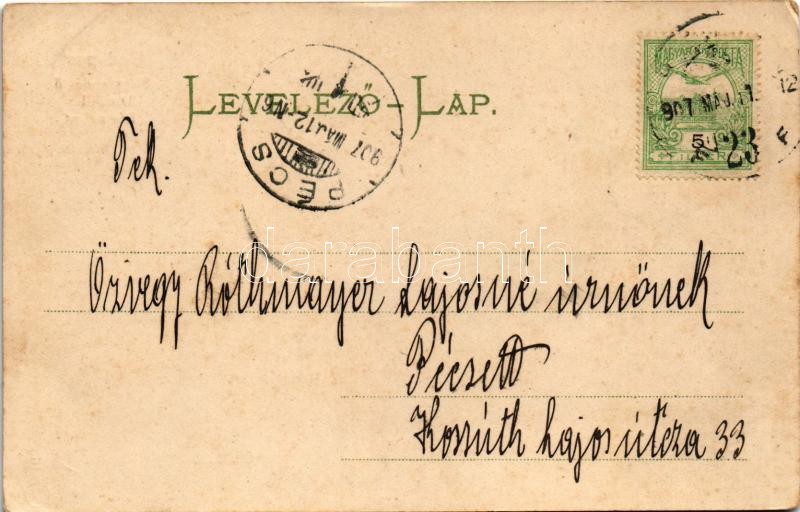 LEVELEZŐ-LAP.
MAGYAR POSTA
907 MÁJ. 11.
23
5
PÉCS
907 MÁJ 12
Tek.
Özvegy Róthmayer Lajosné úrnőnek
Pécsett
Kossúth Lajos útcza 33
darabanth